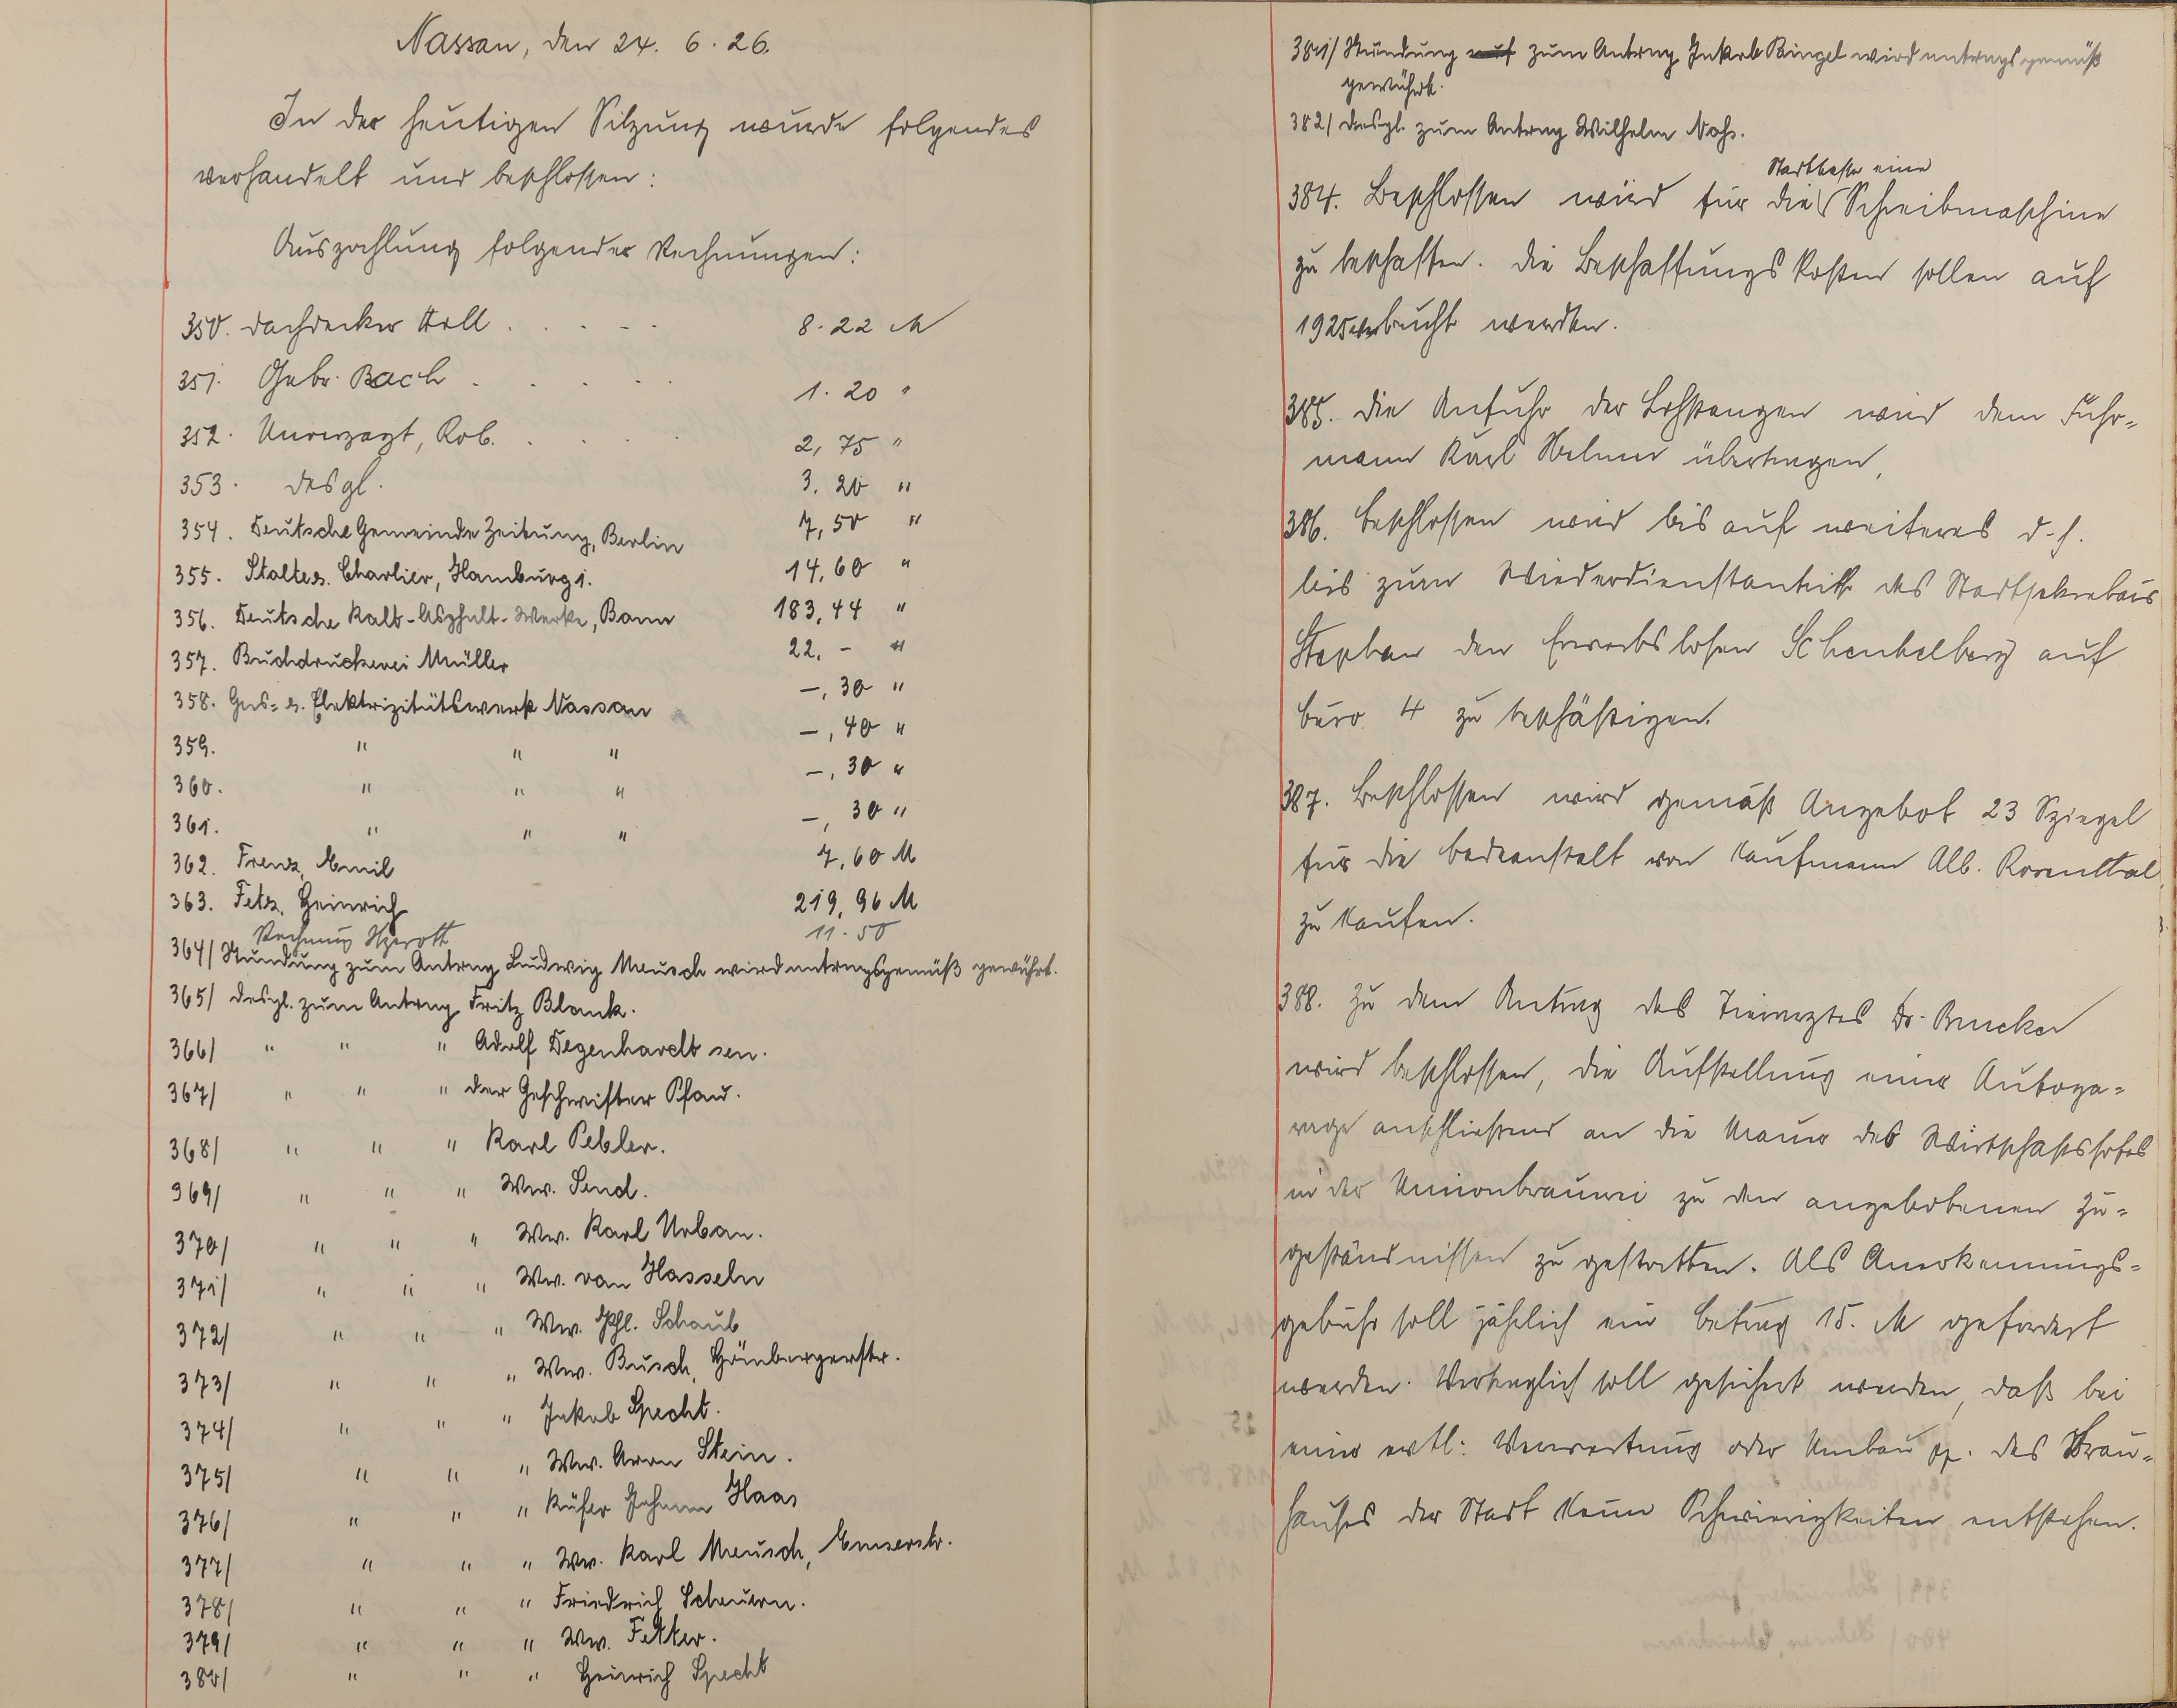 Nassau, den 24. 6. 26.
In der heutigen Sitzung wurde folgendes
verhandelt und beschlossen:
Auszahlung folgender Rechnungen:
350. Dachdecker Holl . . . . . 8.22 M
351. Gebr. Bach . . . . 1.20 "
352. Unverzagt, Rob. . . . . 2,75 "
353. desgl. 3.20 "
354. Deutsche Gemeinde Zeitung, Berlin 7,50 "
355. Charlier, Hamburg 1. 14,60 "
356. Deutsche Kalt-Asphalt-Werke, Bonn 183,44 "
357. Buchdruckerei Müller 22.- "
358. Gas- u. Elektrizitätswerk Nassau -,30 "
359. " " " -,40 "
360. " " " -,30 "
361. " " " -,30 "
362. Frenz, Emil 7,60 M
363. Fetz, Heinrich 219,96 M
Rechnung 11.50
364/ Stundung zum Antrag Ludwig Mausch wird antragsgemäß gewährt.
365/ desgl. zum Antrag Fritz Blank.
366/ " " " Adolf Degenhardt sen.
367/ " " " der Geschwister Pfau.
368/ " " " Karl Pebler.
369/ " " " Ww. Send.
370/ " " " Ww. Karl Urban.
371/ " " " Ww. van Hasseln
372/ " " " Ww. Phl. Schaub
373/ " " " Ww. Busch, Hömbergerstr.
374/ " " " Jakob Specht.
375/ " " " Ww. Aron Stein.
376/ " " " Küfer Johann Haas
377/ " " " Ww. Karl Meusch, Emserstr.
378/ " " " Friedrich Scheuern.
379/ " " " Ww. Fetter.
380/ " " " Heinrich Specht
381/ Stundung auf zum Antrag Jakob Ringel wird antragsgemäß
gewährt.
382/ desgl. zum Antrag Wilhelm Nohs.
Stadtkasse eine
384. Beschlossen wird für die Schreibmaschine
zu beschaffen. Die Beschaffungskosten sollen auf
1925 verbucht werden.
385. Die Anfuhr der Lohstangen wird dem Fuhr-
mann Karl übertragen,
386. Beschlossen wird bis auf weiteres d.h.
bis zum Wiederdienstantritt des Stadtsekretärs
Stephan den Erwerbslosen Schenkelberg auf
Büro 4 zu beschäftigen.
387. Beschlossen wird gemäß Angebot 23 Spiegel
für die Badeanstalt von Kaufmann Alb. Rosenthal
zu kaufen.
388. Zu dem Antrag des Tierarztes Dr. Brucker
wird beschlossen, die Aufstellung einer Autoga-
rage anschließend an die Mauer des Wirtschaftshofes
in der Unionbrauerei zu den angebotenen Zu-
geständnissen zu gestatten. Als Anerkennungs-
gebühr soll jährlich ein Betrag 15. M gefordert
werden. Vertraglich soll gesichert werden, daß bei
einer evtl: Verwertung oder Umbau pp. des Brau-
hauses der Stadt keine Schwierigkeiten entstehen.